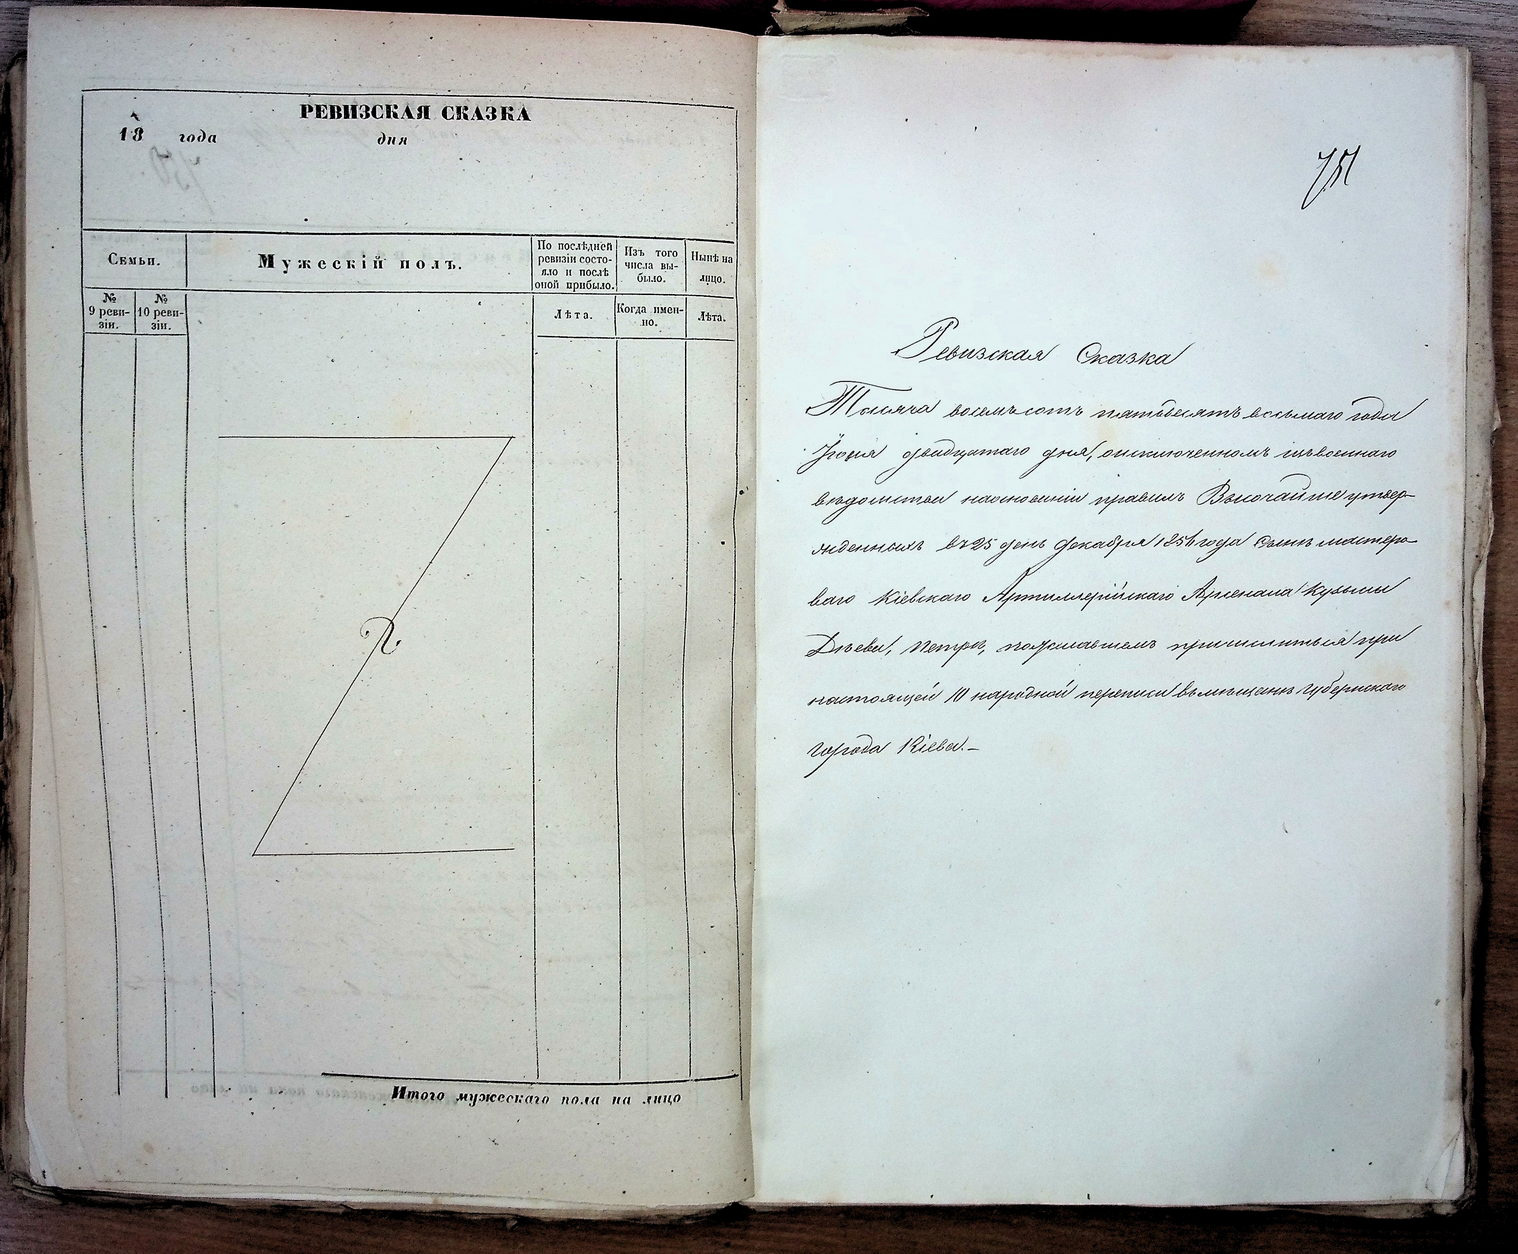 РЕВИЗСКАЯ СКАЗКА
18 года дня
Семьи.
Мужескій полъ.
По послѣдней
ревизіи состо-
яло и послѣ
оной прибыло.
Изъ того
числа вы-
было.
Нынѣ на
лицо.
№
9 реви-
зіи.
№
10 реви-
зіи.
Лѣта.
Когда имен-
но.
Лѣта.
Итого мужескаго пола на лицо
751
Ревизская Сказка
Тысяча восемьсотъ пятьдесятъ восьмаго года
двадцатаго дня, оисключенномъ изъвоеннаго
вѣдомства наоснованіи правилъ Высочайше утвер-
жденныхъ въ 25 день Декабря 1856 года Сынѣ мастеро-
ваго Кіевскаго Артиллерійскаго Арсенала Кузьмы
Петра, пожелавшемъ причислиться при
настоящей 10 народной переписи въмѣщане Губернскаго
города Кіева.–